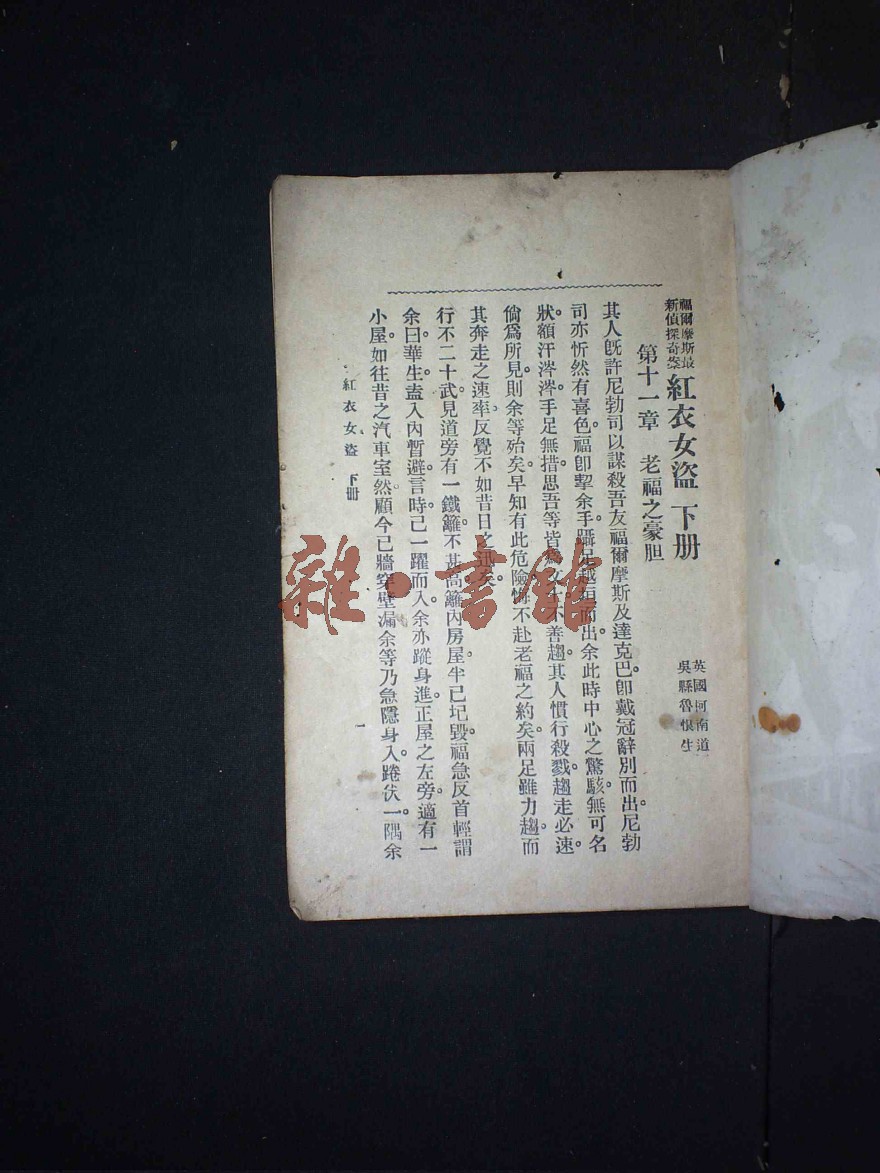 福爾摩斯最
新偵探奇案
紅衣女盜 下册
英國柯南道
吳縣魯恨生
第十一章 老福之豪胆
其人既許尼勃司以謀殺吾友福爾摩斯及達克巴卽戴冠辭別而出。尼勃
司亦忻然有喜色。福卽挈余手。躡足越垣而出。余此時中心之驚駭。無可名
狀。額汗涔涔。手足無措。思吾等皆不善趨。其人慣行殺戮。趨走必速。
倘爲所見。則余等殆矣。早知有此危險。悔不赴老福之約矣。兩足雖力趨。而
其奔走之速率。反覺不如昔日之迅矣。
行不二十武。見道旁有一鐵籬。不甚高。籬內房屋半已圮毀。福急反首輕謂
余曰。華生盍入內暫避。言時。已一躍而入。余亦蹤身進。正屋之左旁。適有一
小屋。如往昔之汽車室然。顧今已牆穿壁漏。余等乃急隱身入。蜷伏一隅。余
紅衣女盜 下册
一
雜·書館